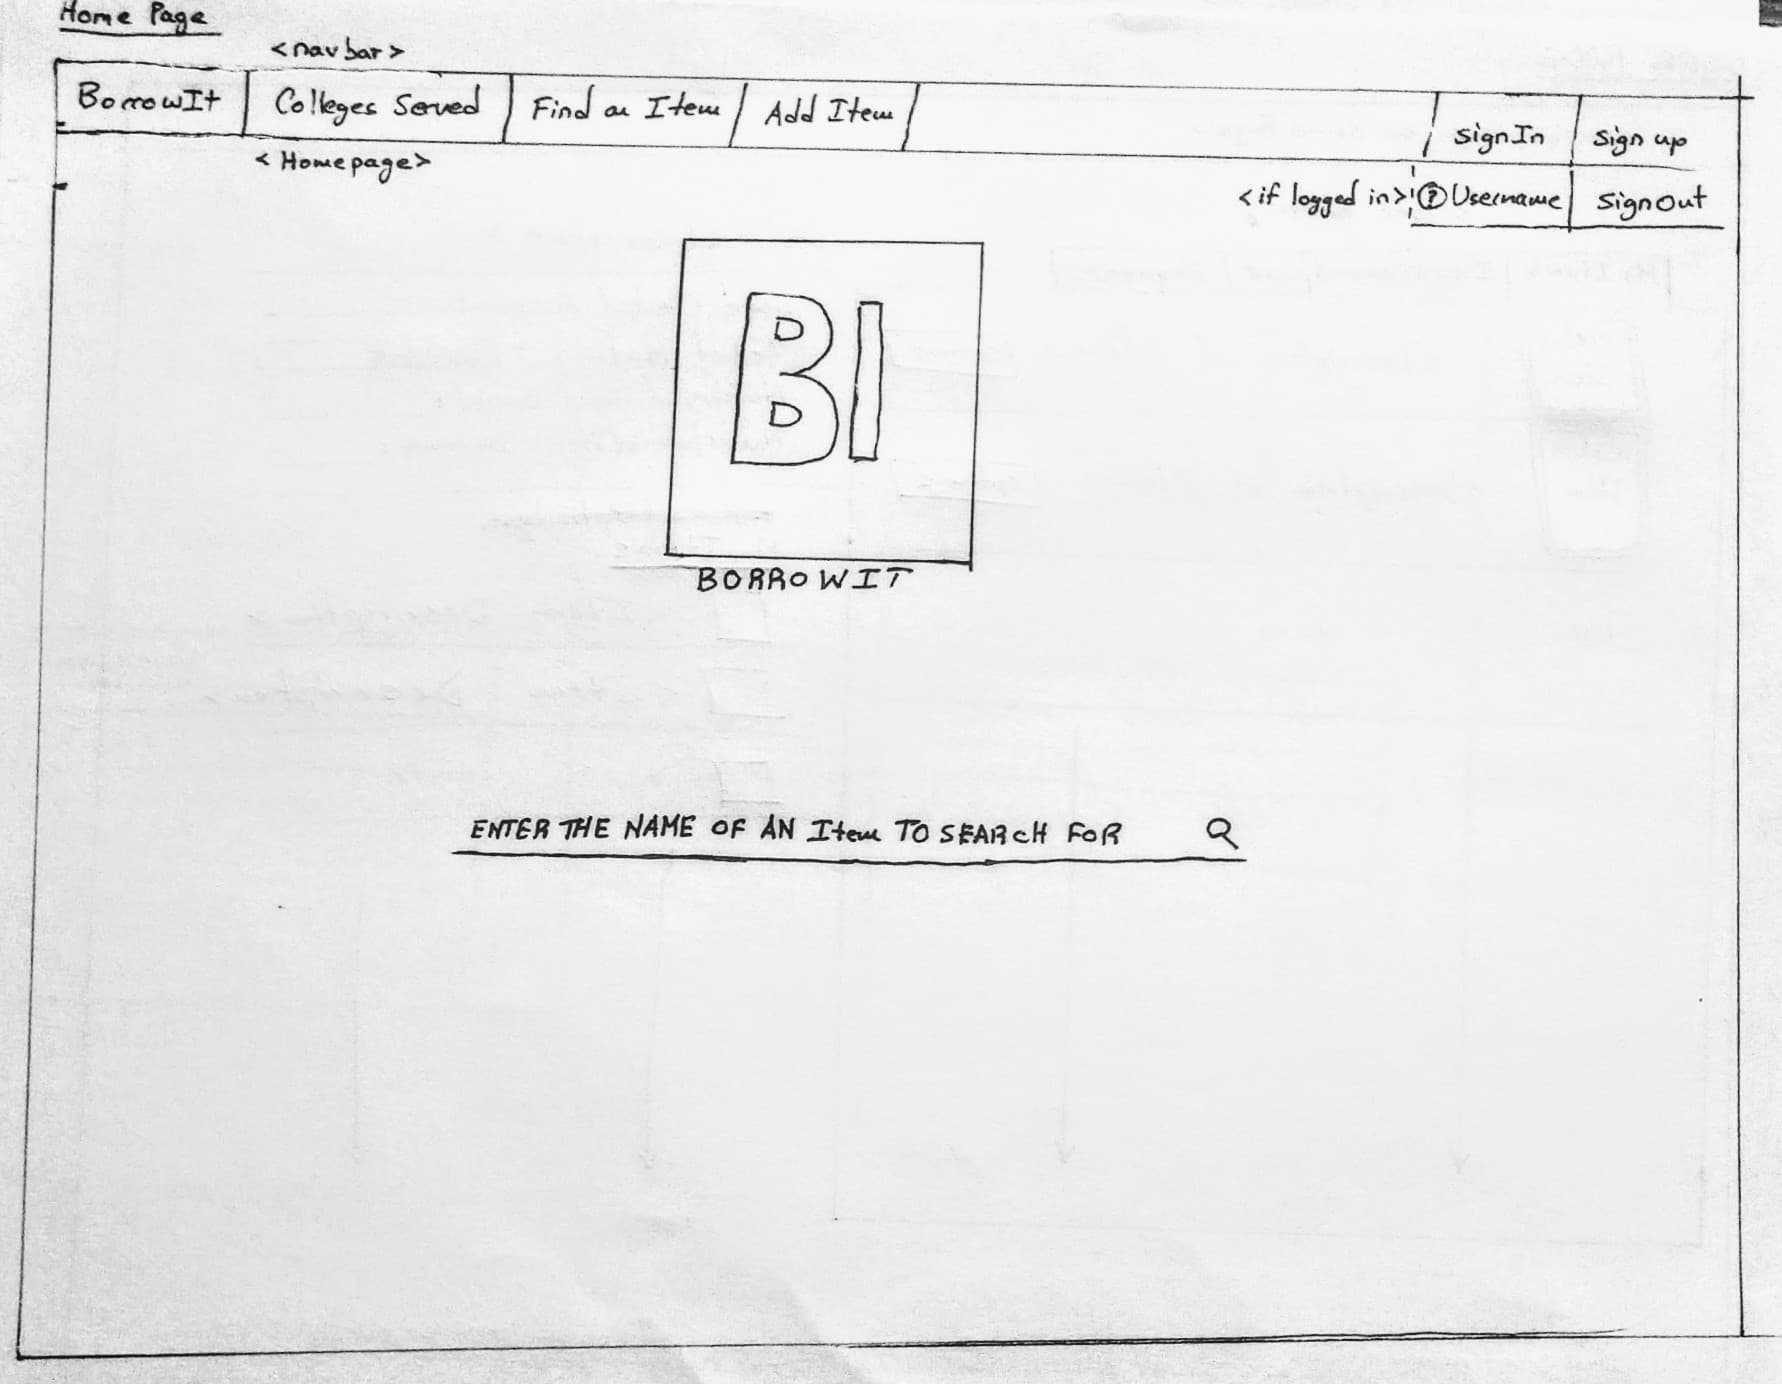 Home Page
<navbar>
BorrowIt Colleges Served Find an Item Add Item SignIn Sign up
<Homepage>
<if logged in> Username SignOut
BI
BORROWIT
ENTER THE NAME OF AN Item TO SEARCH FOR